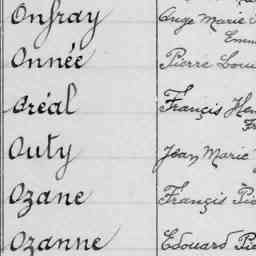 Onfray Ange Marie
Emm
Onnée Pierre Loui
Oréal François Hen
Fr
Outy Jean Marie
Ozane François Pie
Ozanne Edouard Pie